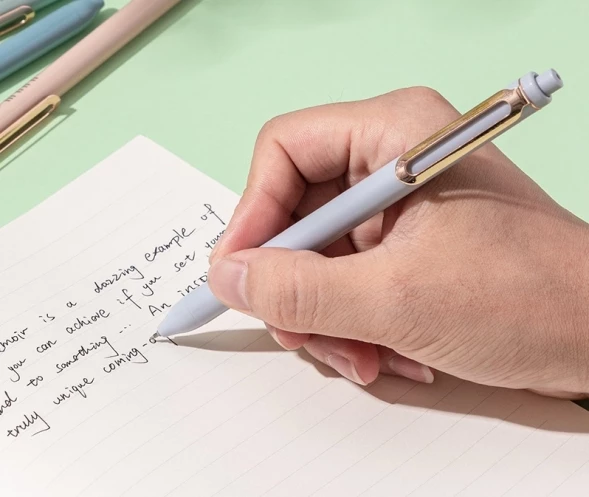 moir is a dazzing example of
you can achieve if you set your
nd to something ... An inspi
truly unique coming-o